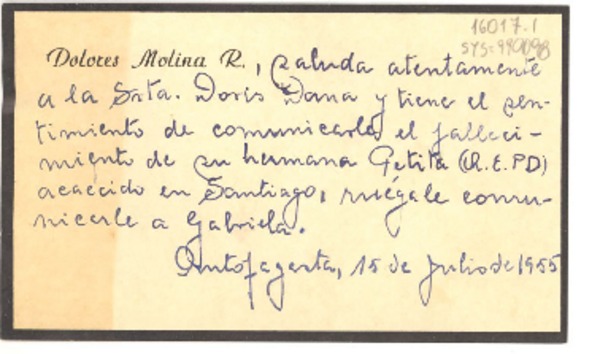 16017.1
SYS=990098
Dolores Molina R., saluda atentamente
a la Srta. Doris Dana y tiene el sen-
timiento de comunicarle el falleci-
miento de su hermana Petita (Q.E.P.D)
acaecido en Santiago, ruégale comu-
nicarle a Gabriela.
Antofagasta, 15 de Julio de 1955